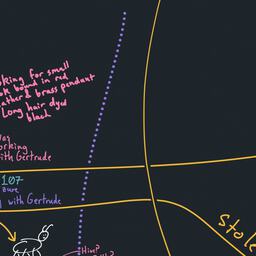 king for small
ok bound in red
ather & brass pendant
Long hair dyed
black
orking
ith Gertrude
107
with Gertrude
Hive?
stole